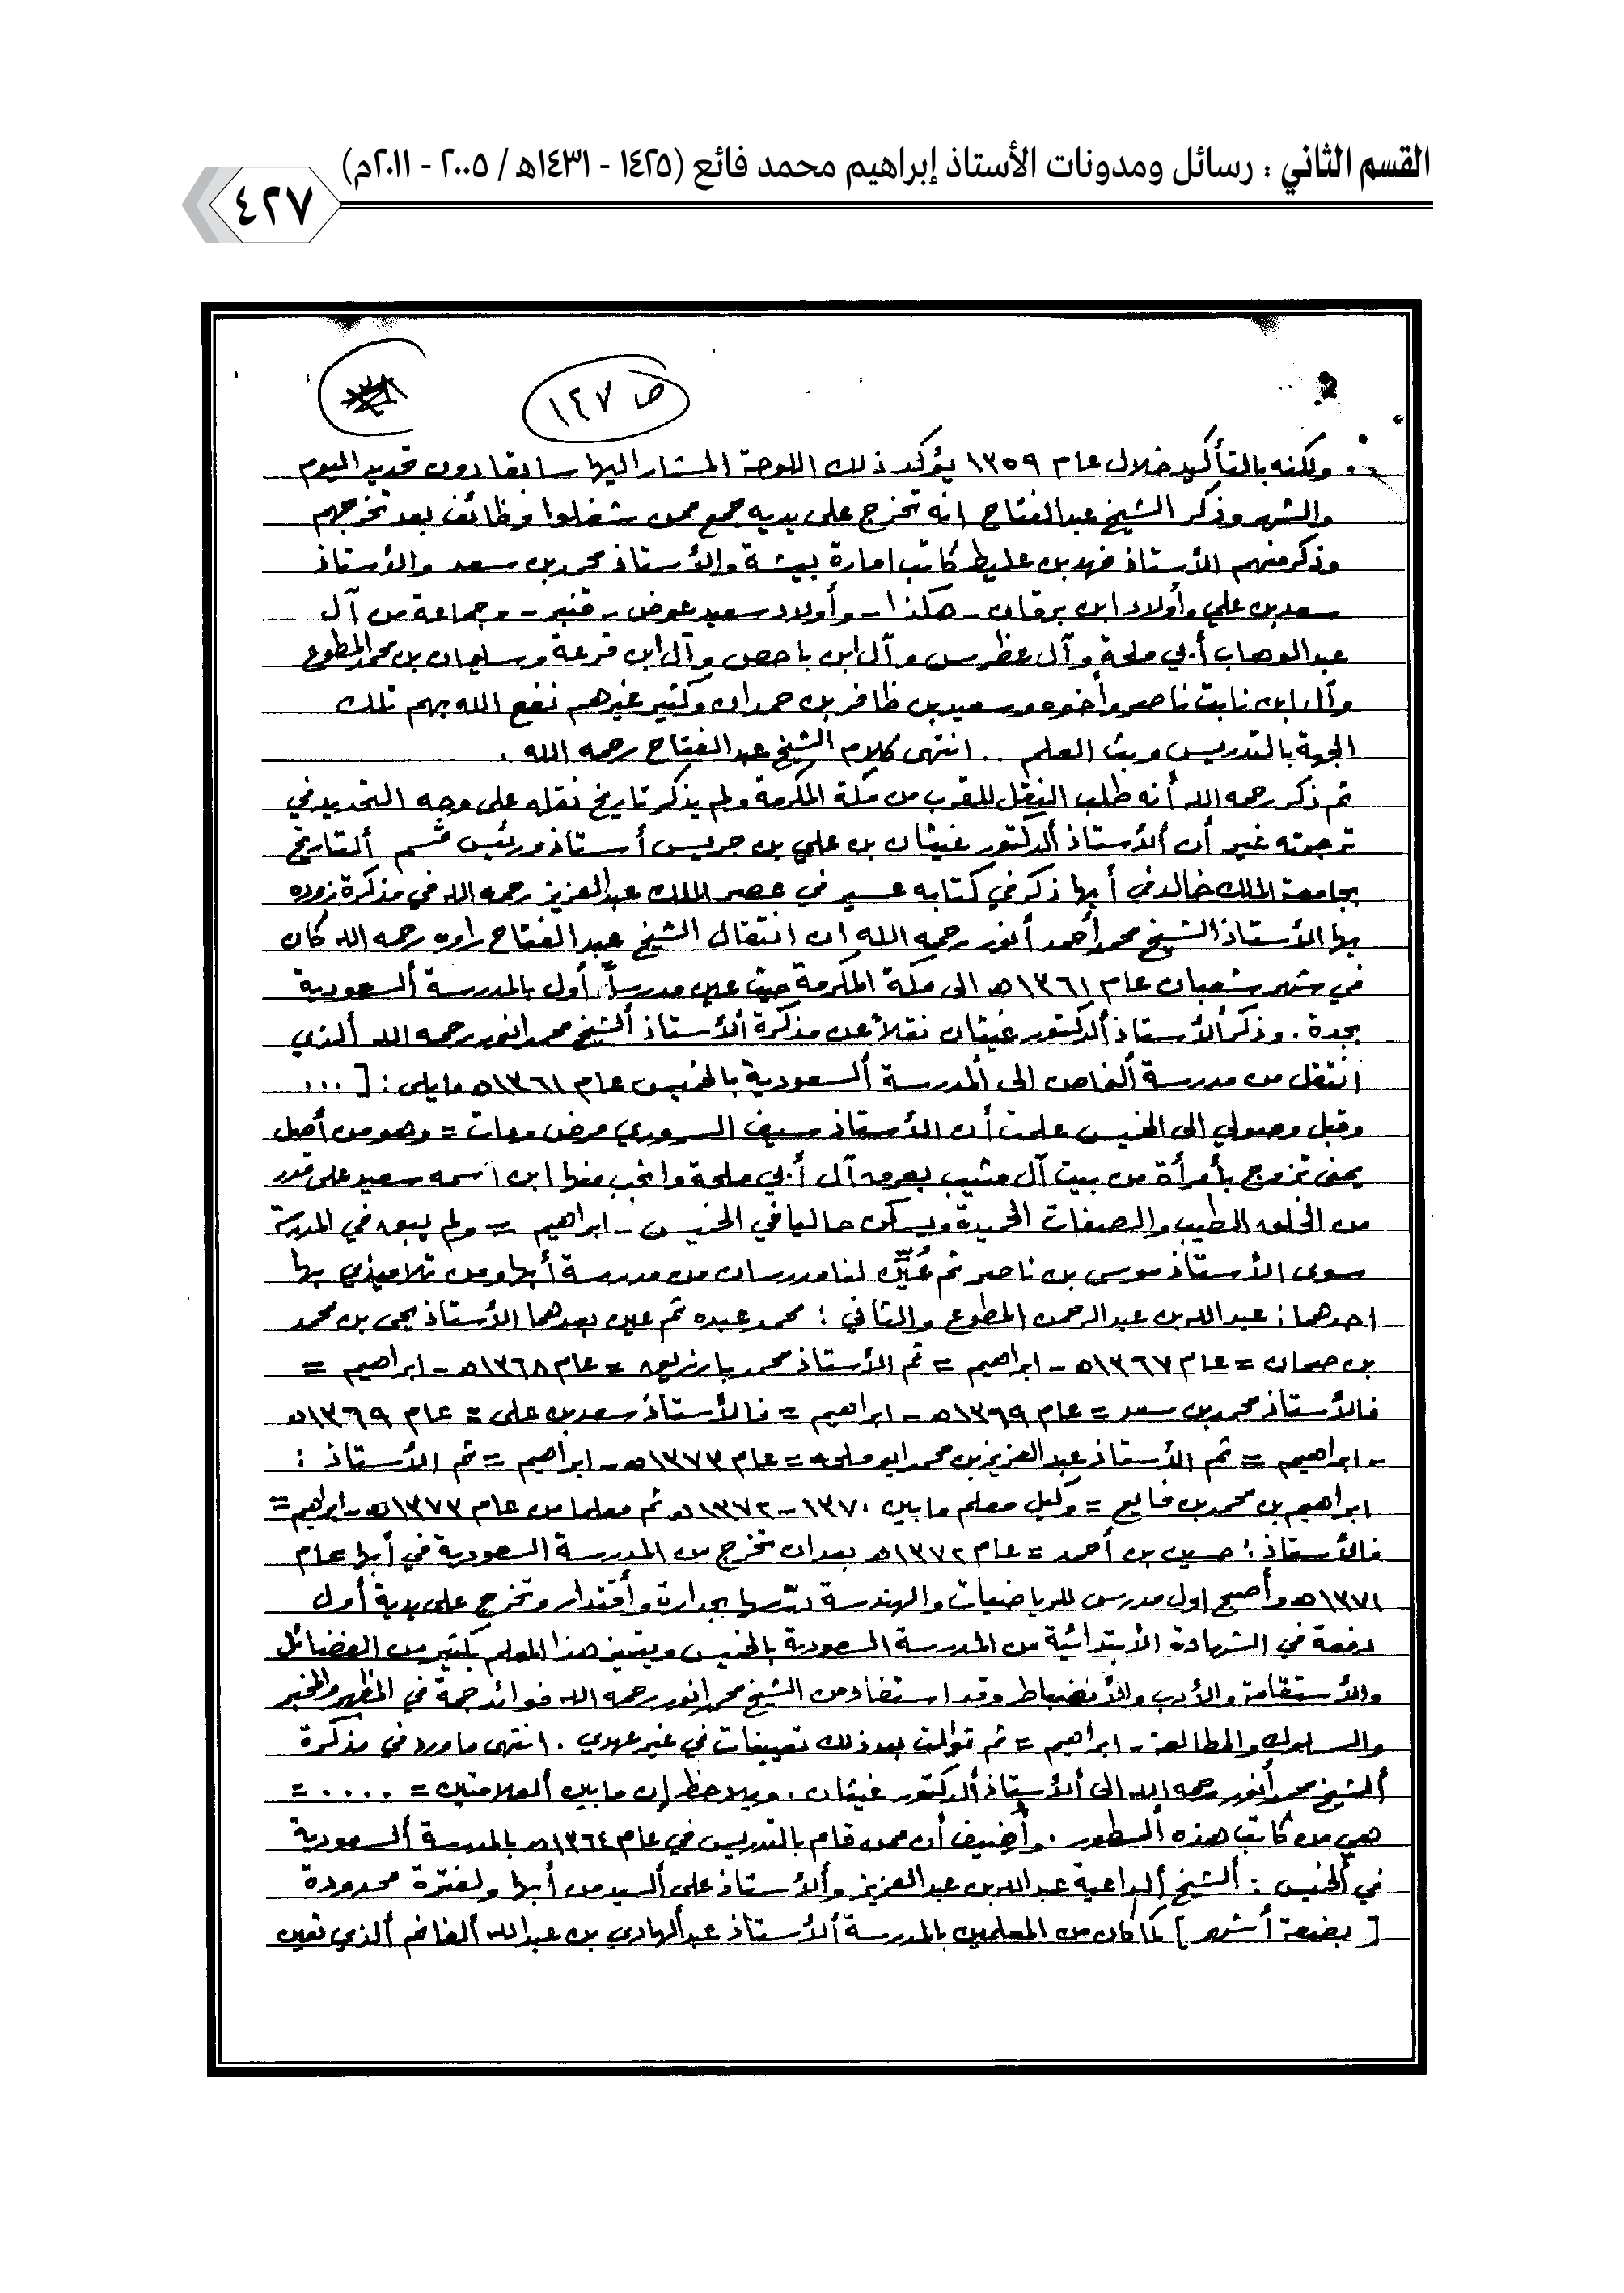 القسم الثاني : رسائل ومدونات الأستاذ إبراهيم محمد فائع (١٤٢٥ - ١٤٣١هـ / ٢٠٠٥ - ٢٠١١م)
٤٢٧
ص ١٤٧
ولكنه بالتأكيد خلال عام ١٣٥٩ يؤكد ذلك اللوحة المشار اليها سابقا دون تحديد اليوم
والشهر وذكر الشيخ عبدالفتاح انه تخرج على يديه جمع ممن شغلوا وظائف بعد تخرجهم
وذكر منهم الأستاذ فهد بن عليط كاتب امارة بيشة والأستاذ محمد بن سعد والأستاذ
سعد بن علي وأولاد ابن برقان - هكذا - وأولاد سعيد عوض - قنبر - وجماعة من آل
عبدالوهاب أبي ملحة وآل عظرس وآل ابن باحص وآل ابن قرعة وسليمان بن محمد المطوع
وآل ابن نابت ناصر وأخوه وسعيد بن ظافر بن حمدان وكثير غيرهم نفع الله بهم تلك
الجهة بالتدريس وبث العلم .. انتهى كلام الشيخ عبدالفتاح رحمه الله .
ثم ذكر رحمه الله أنه طلب النقل للقرب من مكة المكرمة ولم يذكر تاريخ نقله على وجه التحديد في
ترجمته غير أن ألأستاذ ألدكتور غيثان بن علي بن جريس أستاذ ورئيس قسم ألتاريخ
بجامعة الملك خالد في أبها ذكر في كتابه عسير في عصر الملك عبدالعزيز رحمه الله في مذكرة زوده
بها الأستاذ الشيخ محمد أحمد أنور رحمه الله ان انتقال الشيخ عبدالفتاح راوه رحمه الله كان
في شهر شعبان عام ١٣٦١هـ الى مكة المكرمة حيث عين مدرساً أول بالمدرسة ألسعودية
بجدة . وذكر ألأستاذ ألدكتور غيثان نقلاً عن مذكرة ألأستاذ ألشيخ محمد انور رحمه الله ألذي
انتقل من مدرسة ألنماص الى ألمدرسة ألسعودية بالخميس عام ١٣٦١هـ مايلي : [ ...
وقبل وصولي الى الخميس علمت أن الأستاذ سيف السروري مرض ومات = وهو من أصل
يمني تزوج بأمرأة من بيت آل مشيب بعرق آل أبي ملحة وانجب منها ابن اسمه سعيد على قدر
من الخلق الطيب والصفات الحميدة ويسكن حاليا في الخميس - ابراهيم = ولم يبق في المدرسة
سوى الأستاذ موسى بن ناصر ثم عُيّن لنا مدرسان من مدرسة أبها ومن تلاميذي بها
احدهما : عبدالله بن عبدالرحمن المطوع والثاني : محمد عبده ثم عين بعدهما الأستاذ يحي بن محمد
بن صمان = عام ١٣٦٧هـ - ابراهيم = ثم الأستاذ محمد بارزيق = عام ١٣٦٨هـ - ابراهيم =
فالأستاذ محمد بن سعد = عام ١٣٦٩هـ - ابراهيم = فالأستاذ سعد بن على = عام ١٣٦٩هـ
- ابراهيم = ثم الأستاذ عبدالعزيز بن محمد ابو ملحه = عام ١٣٧٣هـ - ابراهيم = ثم الأستاذ :
ابراهيم بن محمد بن فايع = وكيل معلم مابين ١٣٧٠ - ١٣٧٢هـ ثم معلما من عام ١٣٧٣هـ - ابراهيم =
فالأستاذ : حسين بن أحمد = عام ١٣٧٢هـ بعد ان تخرج من المدرسة السعودية في أبها عام
١٣٧١هـ وأصبح اول مدرس للرياضيات والهندسة درّسها بجدارة وأقتدار وتخرج على يدية أول
دفعة في الشهادة الأبتدائية من المدرسة السعودية بالخميس ويتميز هذا المعلم بكثير من الفضائل
والأستقامة والأدب والأنضباط وقد استفاد من الشيخ محمد انور رحمه الله فوائد جمة في المظهر والمخبر
والسلوك والمطالعة - ابراهيم = ثم توالت بعد ذلك تعيينات في غير عهدي . انتهى ماورد في مذكرة
ألشيخ محمد أنور رحمه الله الى ألأستاذ ألدكتور غيثان . ويلاحظ إن مابين ألعلامتين = .... =
هي من كاتب هذه ألسطور . وأضيف أن ممن قام بالتدريس في عام ١٣٦٤هـ بالمدرسة ألسعودية
في ألخميس : ألشيخ ألداعية عبدالله بن عبدالعزيز وألأستاذ على ألسيد من أبها ولفترة محدودة
[ بضعة أشهر ] كما كان من المعلمين بالمدرسة ألأستاذ عبدألهادي بن عبدالله ألفاضم ألذي تعين